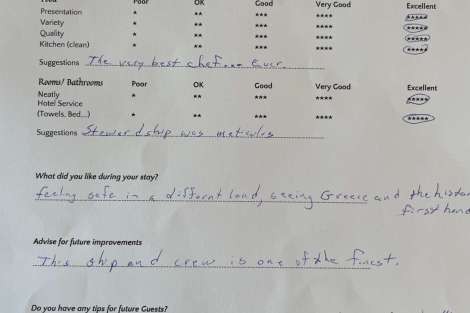 Poor OK Good Very Good Excellent
Presentation * ** *** **** *****
Variety * ** *** **** *****
Quality * ** *** **** *****
Kitchen (clean) * ** *** **** *****
Suggestions The very best chef... Ever.
Rooms/ Bathrooms Poor OK Good Very Good Excellent
Neatly * ** *** **** *****
Hotel Service
(Towels, Bed...) * ** *** **** *****
Suggestions Steward ship was
What did you like during your stay?
feeling safe in a differnt land, seeing Greece and the
first hand
Advise for future improvements
This ship and crew is one of the finest.
Do you have any tips for future Guests?